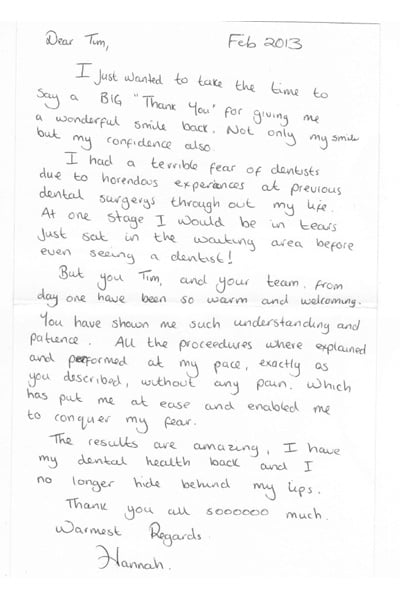 Dear Tim, Feb 2013
I just wanted to take the time to
say a BIG "Thank You" for giving me
a wonderful smile back. Not only my smile
but my confidence also.
I had a terrible fear of dentists
due to horendous experiences at previous
dental surgerys through out my life.
At one stage I would be in tears
just sat in the waiting area before
even seeing a dentist!
But you Tim, and your team. From
day one have been so warm and welcoming.
You have shown me such understanding and
patience. All the proceedures where explained
and performed at my pace, exactly as
you described, without any pain. Which
has put me at ease and enabled me
to conquer my fear.
The results are amazing, I have
my dental health back and I
no longer hide behind my lips.
Thank you all soooooo much.
Warmest Regards.
Hannah.